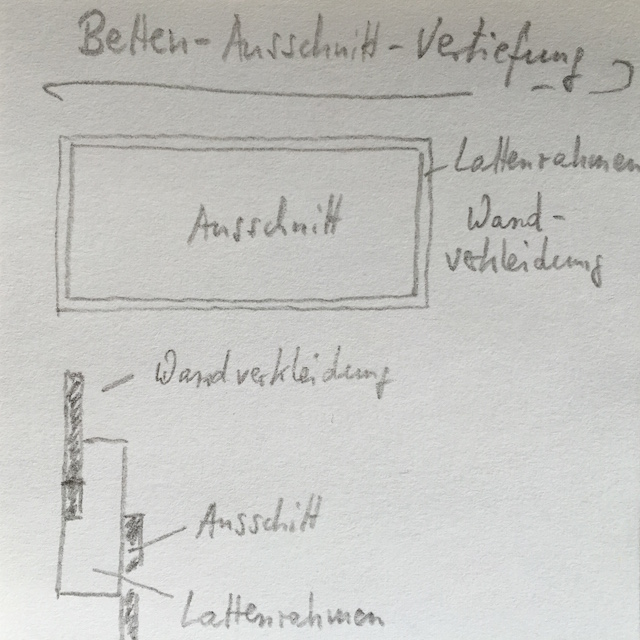 Betten-Ausschnitt-Vertiefung
Lattenrahmen
Ausschnitt
Wand-
verkleidung
Wandverkleidung
Ausschitt
Lattenrahmen